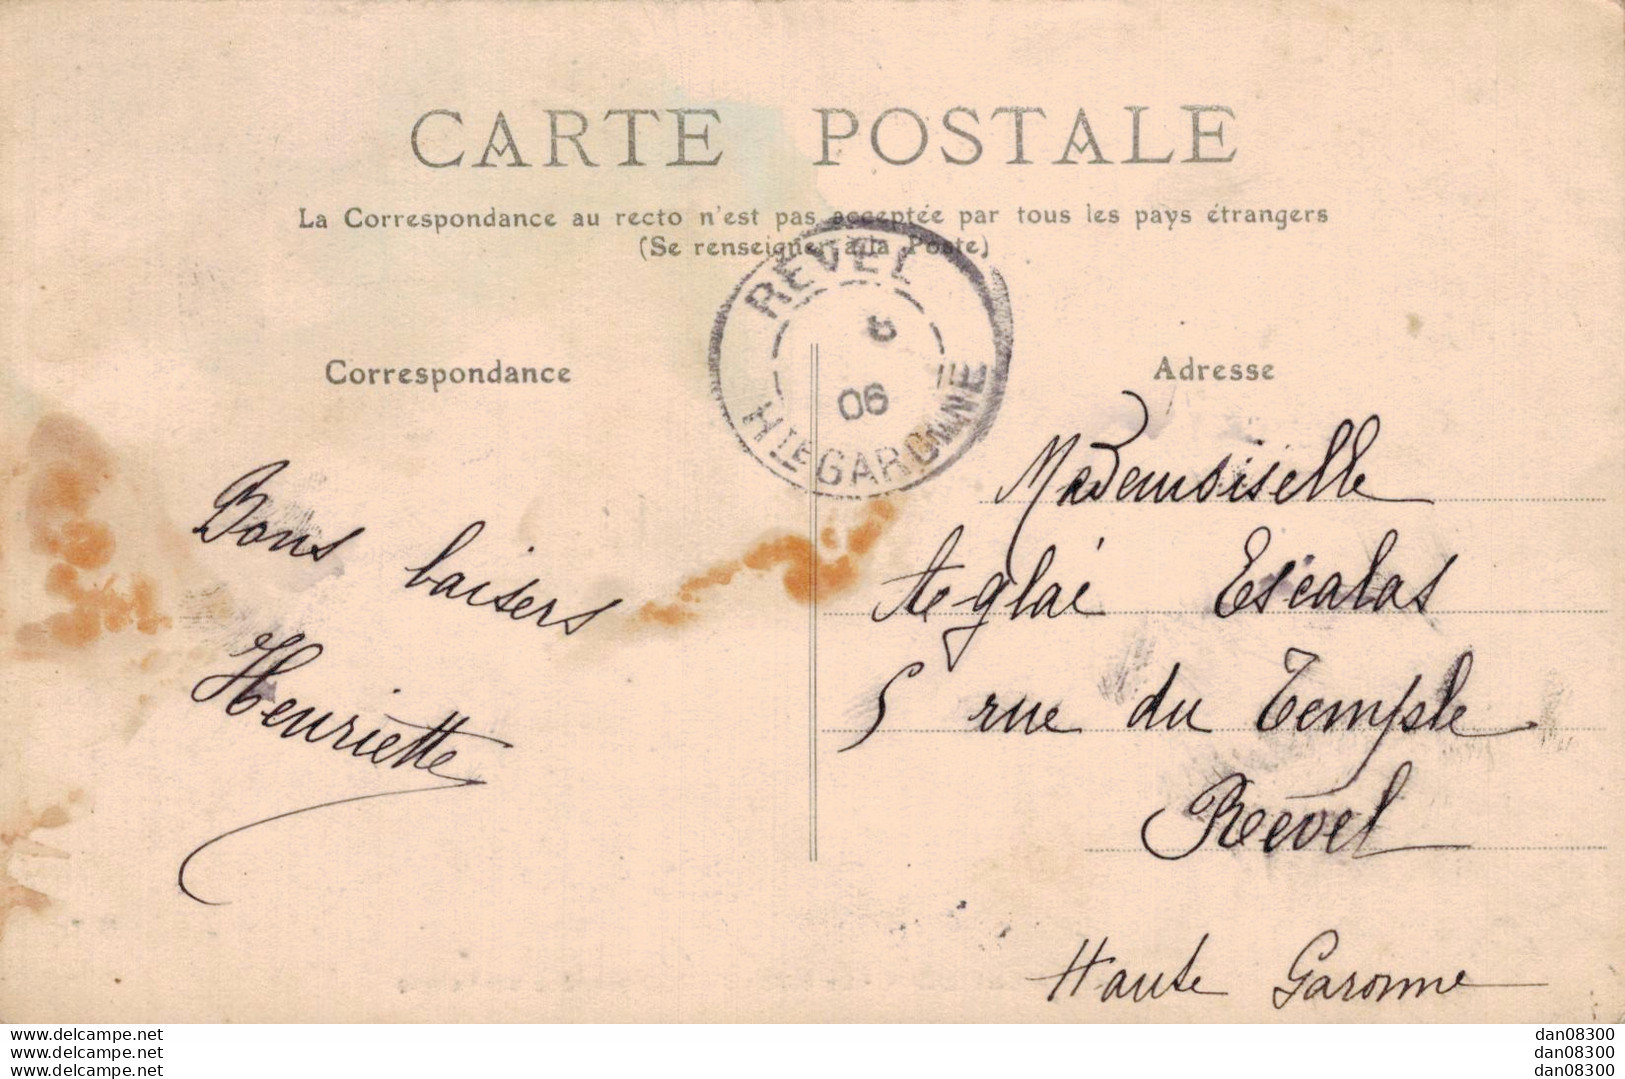 CARTE POSTALE
La Correspondance au recto n'est pas acceptée par tous les pays étrangers
(Se renseigner à la Poste)
REVEL
8
06
HTE GARONNE
Correspondance
Adresse
Bons baisers
Henriette
Mademoiselle
Aeglaé Escalas
5 rue du Temple
Revel
Haute Garonne
www.delcampe.net
www.delcampe.net
www.delcampe.net
dan08300
dan08300
dan08300